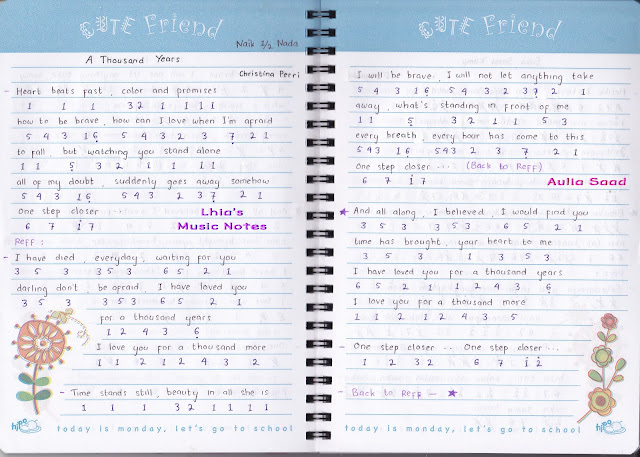 CUTE Friend
Naik 2/2 Nada
A Thousand Years
Christina Perri
- Heart beats fast, color and promises
1 1 1 3 2 1 1 1 1
how to be brave, how can I love when I'm afraid
5 4 3 1 6 5 4 3 2 3 7 2 1
to fall, but watching you stand alone
1 1 5 3 2 1 1 1 1
all of my doubt, suddenly goes away somehow
5 4 3 1 6 5 4 3 2 3 7 2 1
One step closer ...
6 7 1 7
Lhia's
Music Notes
Reff :
- I have died, everyday, waiting for you
3 5 3 3 5 3 6 5 2 1
darling don't be afraid, I have loved you
3 5 3 3 5 3 6 5 2 1
for a thousand years
1 2 4 3 6
I love you for a thousand more
1 1 2 1 2 4 3 2
- Time stands still, beauty in all she is
1 1 1 3 2 1 1 1 1
hipo
today is monday, let's go to school
CUTE Friend
I will be brave, I will not let anything take
5 4 3 1 6 5 4 3 2 3 7 2 1
away, what's standing in front of me
1 1 5 3 2 1 1 5 3
every breath, every hour has come to this
5 4 3 1 6 5 4 3 2 3 7 2 1
One step closer ... (Back to Reff)
6 7 1 7
Aulia Saad
★ And all along, I believed, I would find you
3 5 3 3 5 3 6 5 2 1
time has brought, your heart to me
3 5 3 1 3 5 3
I have loved you for a thousand years
6 5 2 1 1 2 4 3 6
I love you for a thousand more
1 1 2 1 2 4 3 5
- One step closer ... One step closer ...
1 2 3 2 6 7 1 2
Back to Reff — ★
hipo
today is monday, let's go to school